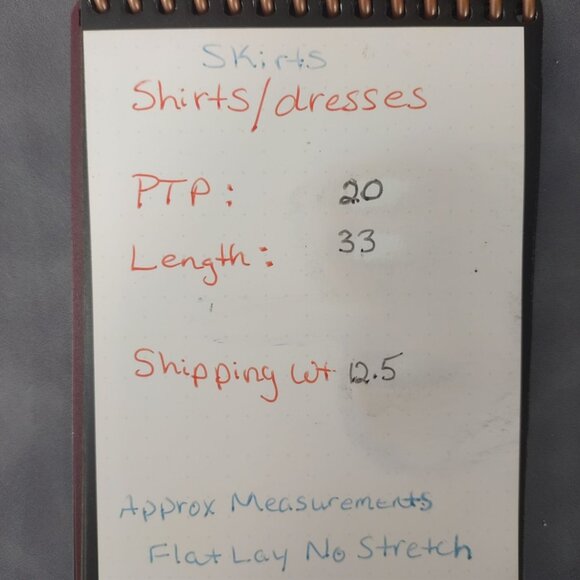 Skirts
Shirts/dresses
PTP: 20
Length: 33
Shipping Wt 12.5
Approx Measurements
Flat Lay No Stretch